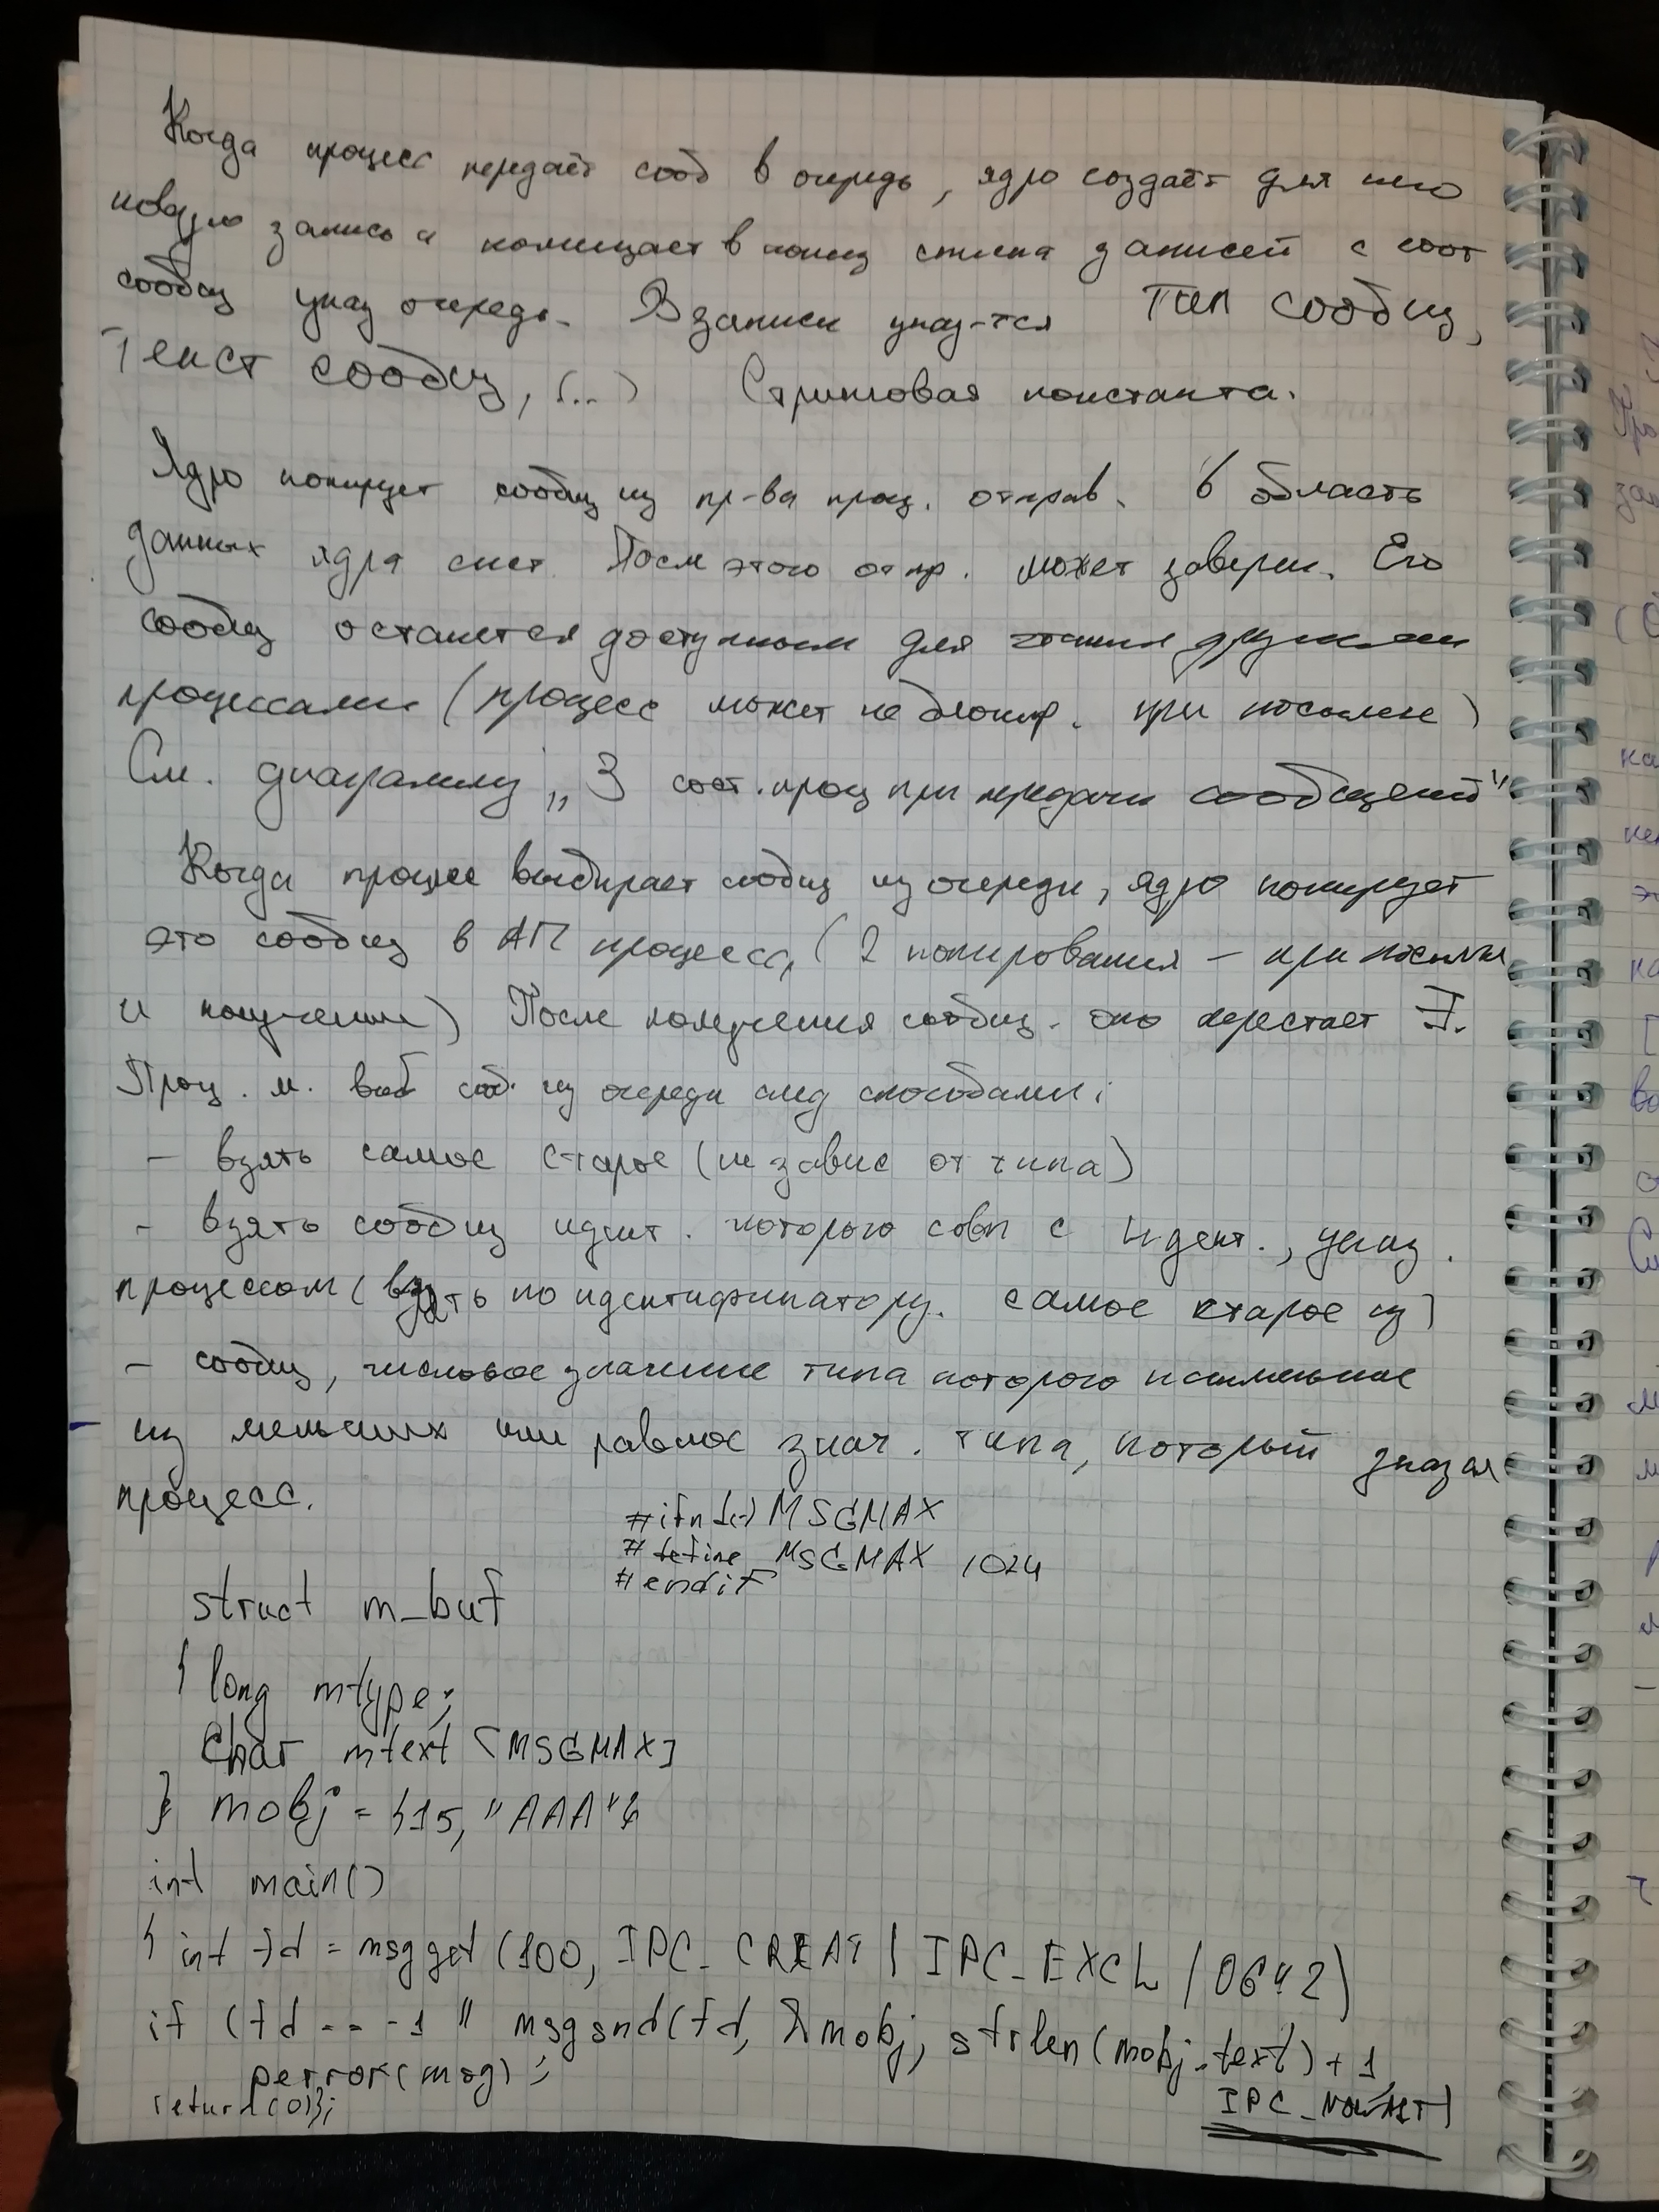 Когда процесс передаёт сооб в очередь, ядро создаёт для него
новую запись и помещает в конец списка записей с соот
сообщ указ очередь. В записи указ-тся тип сообщ,
текст сообщ, (...) Стринговая константа.
Ядро копирует сообщ из пр-ва проц. отправ. в область
данных ядра сист. После этого отпр. может заверш. Его
сообщ останется доступным для чтения другими
процессами (процесс может не блокир. при посылке)
См. диаграмму „3 сост. проц при передачи сообщений"
Когда процесс выбирает сообщ из очереди, ядро копирует
это сообщ в АП процесса, (2 копирования - при посылки
и получении) После получения сообщ. оно перестает ∃.
Проц. м. выб сооб. из очереди след способами:
- взять самое старое (не завис от типа)
- взять сообщ идент. которого совп с идент., указ.
процессом (взять по идентификатору. самое старое из)
- сообщ, числовое значение типа которого наименьшее
из меньших или равное знач. типа, который указал
процесс.
#ifndef MSGMAX
#define MSGMAX 1024
#endif
struct m_buf
{ long mtype;
char mtext [MSGMAX]
} mobj = {15, "AAA"}
int main()
{ int fd = msgget (100, IPC_CREAT | IPC_EXCL | 0642)
if (fd == -1 || msgsnd(fd, &mobj, strlen(mobj.text) + 1,
IPC_NOWAIT)
perror(msg);
return(0)};